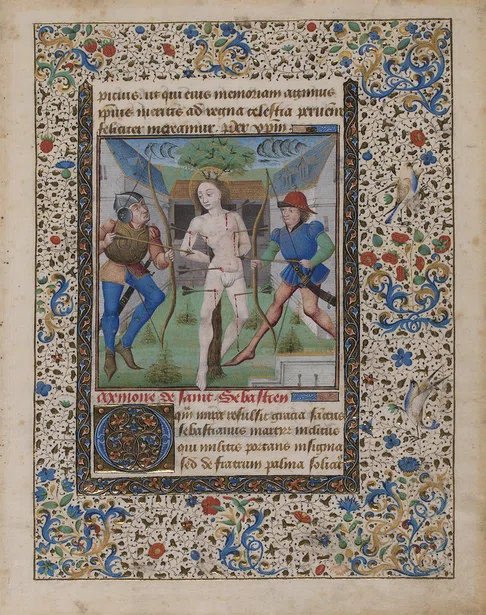 picius ut qui eius memoriam agimus
ipsius meritis ad regna celestia perven
feliciter mereamur Per xpm
Memoire de saint Sebastien
O quam mira refulsit gracia sanctus
Sebastianus martyr inclitus
qui militis portans insignia
sed de fratrum palma solicit